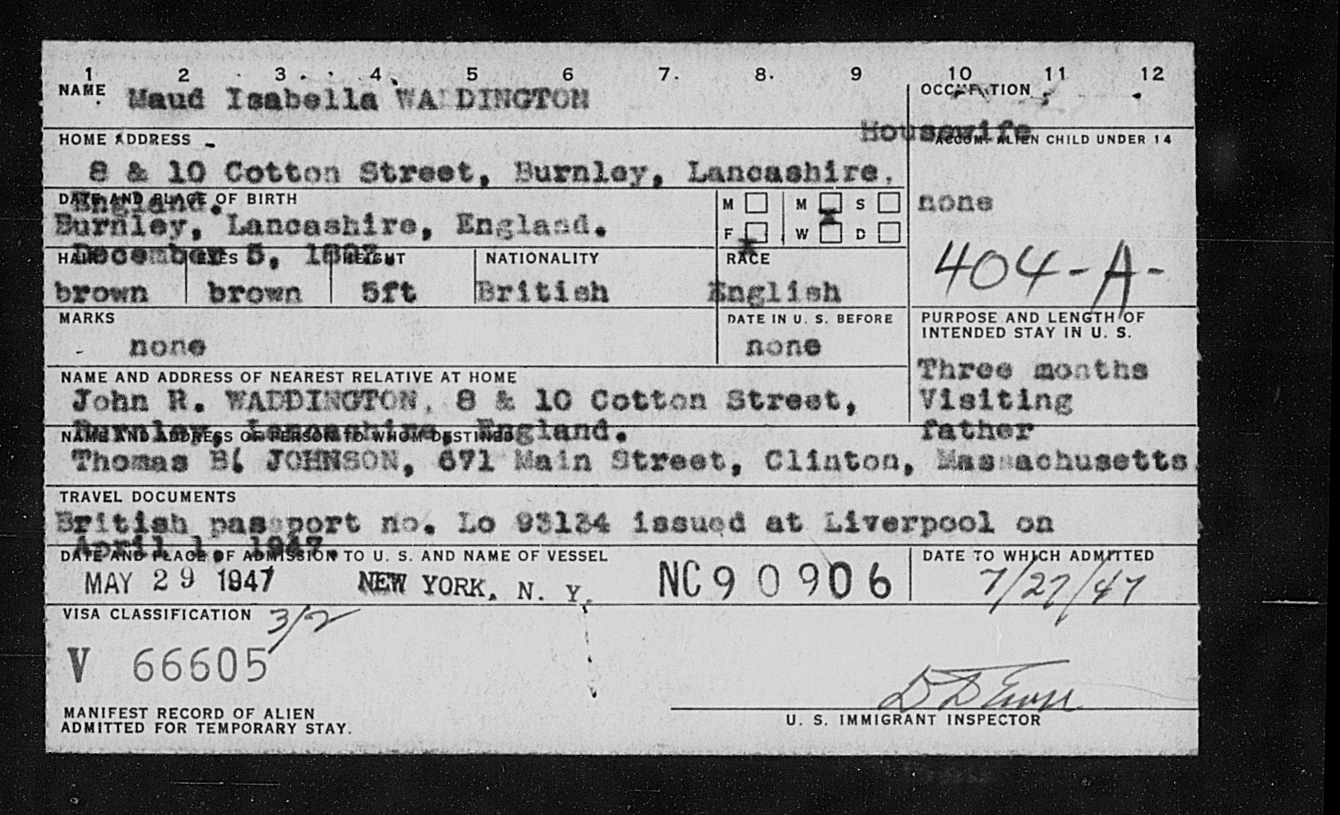 1 2 3 4 5 6 7 8 9 10 11 12
NAME OCCUPATION
Maud Isabella WADDINGTON
Housewife
HOME ADDRESS ACCOM. ALIEN CHILD UNDER 14
8 & 10 Cotton Street, Burnley, Lancashire,
England.
DATE AND PLACE OF BIRTH M M S none
Burnley, Lancashire, England. F x W x D
December 5, 
HAIR EYES HEIGHT NATIONALITY RACE
404-A-
brown brown 5ft British English
MARKS DATE IN U. S. BEFORE PURPOSE AND LENGTH OF
INTENDED STAY IN U. S.
none none
Three months
NAME AND ADDRESS OF NEAREST RELATIVE AT HOME
John R. WADDINGTON, 8 & 10 Cotton Street, Visiting
Burnley, Lancashire, England. father
NAME AND ADDRESS OF PERSON TO WHOM DESTINED
Thomas B. JOHNSON, 671 Main Street, Clinton, Massachusetts.
TRAVEL DOCUMENTS
British passport no. Lo 93134 issued at Liverpool on
April 1, 1947.
DATE AND PLACE OF ADMISSION TO U. S. AND NAME OF VESSEL DATE TO WHICH ADMITTED
MAY 29 1947 NEW YORK, N. Y. NC90906 7/27/47
VISA CLASSIFICATION 3/2
V 66605
MANIFEST RECORD OF ALIEN
ADMITTED FOR TEMPORARY STAY.
U. S. IMMIGRANT INSPECTOR